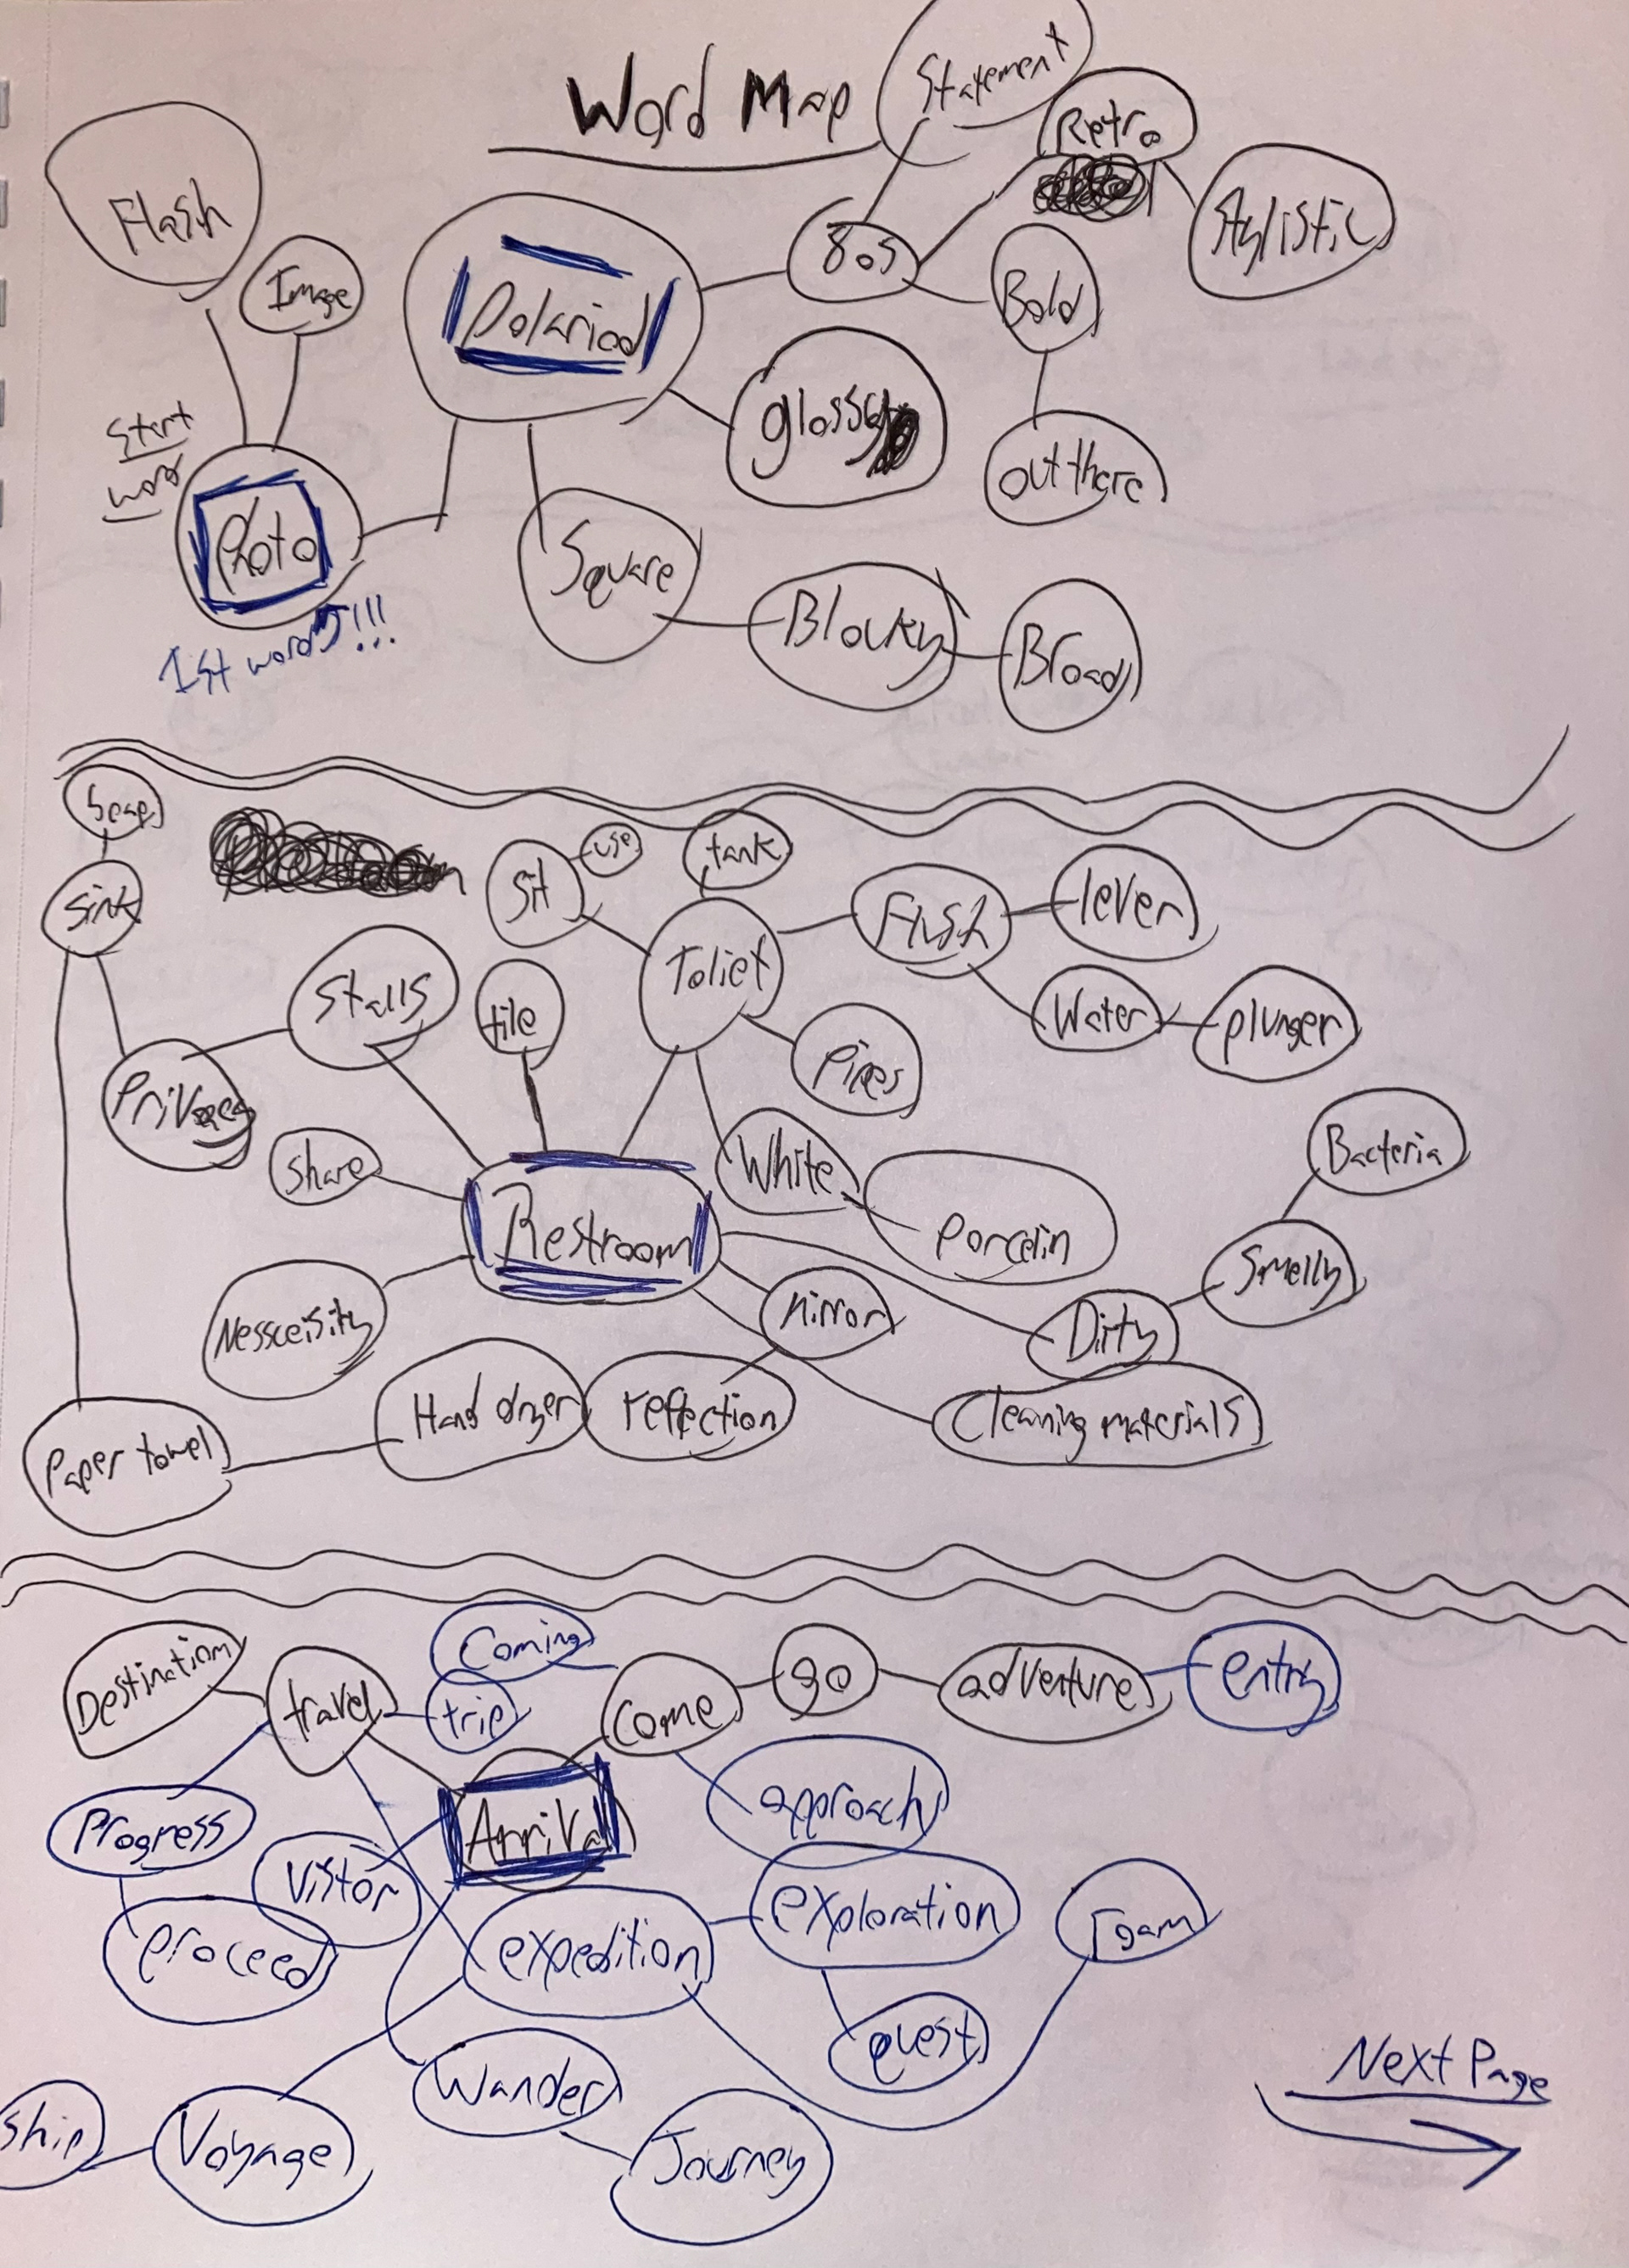 Word Map
Statement
Retro
Flash
Stylistic
80s
Image
Polariod
Bold
glossy
Start
word
out there
Photo
Square
1st word!!!
Blocky
Broad
Soap
use
tank
Sit
Flush
lever
Sink
Toliet
Stalls
tile
Water
plunger
Pipes
Privacy
Share
White
Bacteria
Restroom
Porcelin
Smelly
Nessceisity
Mirror
Dirty
Hand dryer
reflection
Cleaning materials
Paper towel
Coming
Destination
travel
trip
Come
go
adventure
entry
approach
Progress
Arrival
Vistor
exploration
roam
proceed
expedition
quest
Next Page
Wander
ship
Voyage
Journey